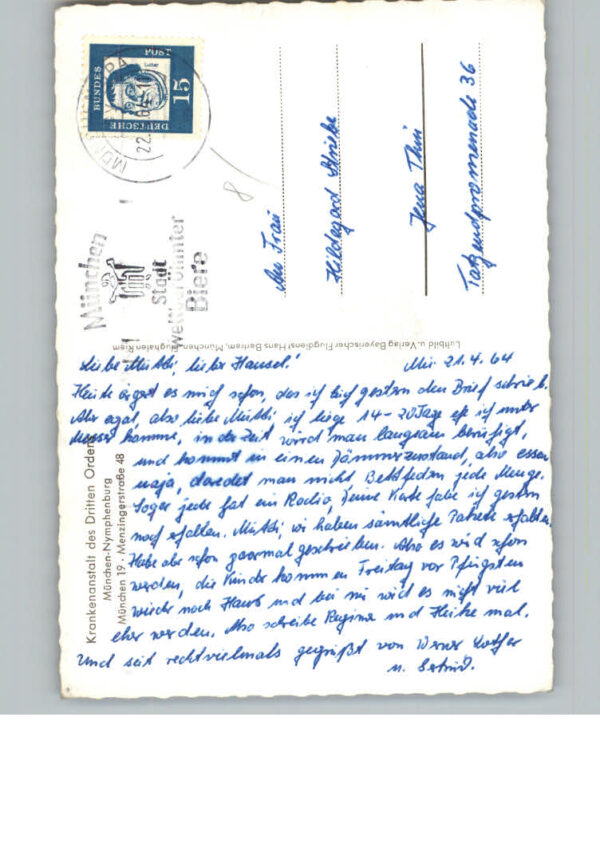 DEUTSCHE
BUNDES
POST
15
Luther
22.
64-1
München
Stadt
weltberühmter
Biere
8
An Frau
Hildegard
Jena Thür
Tatzendpromenade 36
Luftbild u. Verlag Bayerischer Flugdienst Hans Bertram, München, Flughafen Riem
Krankenanstalt des Dritten Ordens
München-Nymphenburg
München 19 · Menzingerstraße 48
Mü. 21.4.64
Liebe Mutti, lieber Hansel!
Heute ärgert es mich schon, das ich Euch gestern den Brief schrieb.
Aber egal, also liebe Mutti ich liege 14-20 Tage eh ich unter
Messer komme, in der Zeit wird man langsam beruhigt,
und kommt in einen Dämmerzustand, also essen
naja, da redet man nicht Bettfedern jede Menge.
Sogar jede hat ein Radio, Deine Karte habe ich gestern
noch erhalten. Mutti wir haben sämtliche Pakete erhalten.
Habe aber schon paarmal geschrieben. Also es wird schon
werden, die Kinder kommen Freitag vor Pfingsten
wieder nach Haus und bei mir wird es nicht viel
eher werden. Also schreibe Regina und Heike mal.
Und seit recht vielmals gegrüßt von Werner Lothar
u.